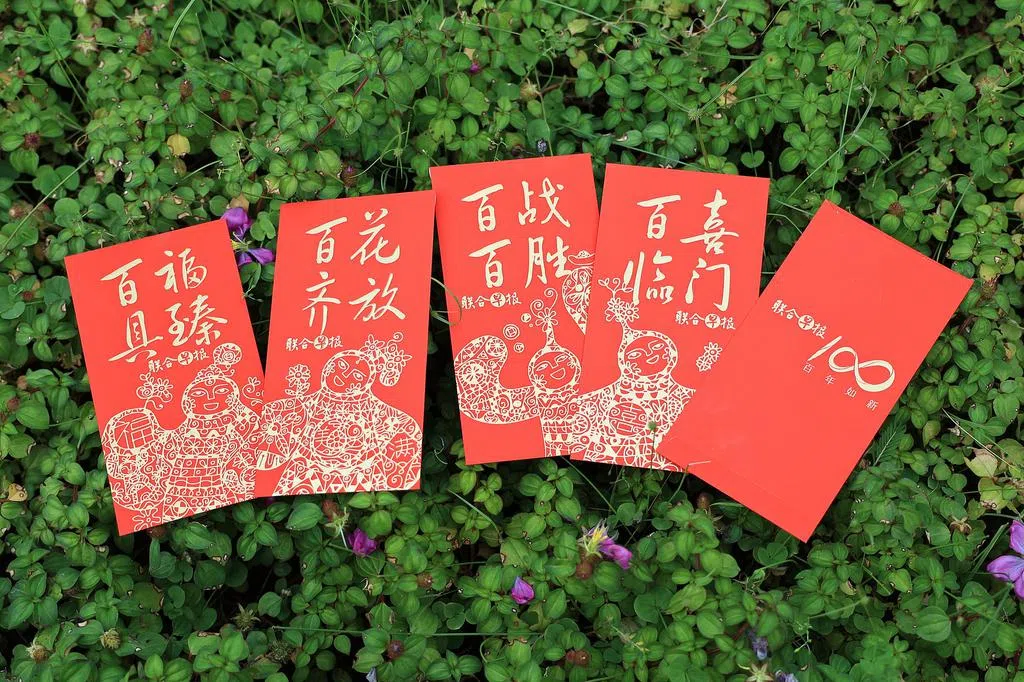 百福
具臻
联合早报
百花
齐放
联合早报
百战
百胜
联合早报
百喜
临门
联合早报
联合早报
100
百年如新